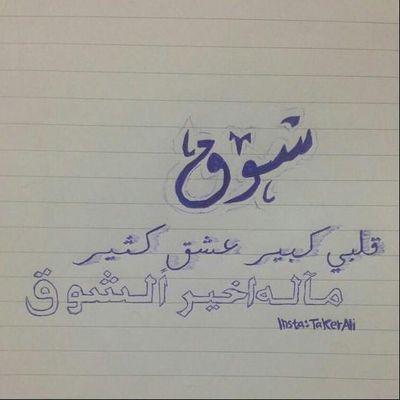 شوق
قلبي كبير عشق كثير
مآله اخير اَلشوق
Insta:TakerAli